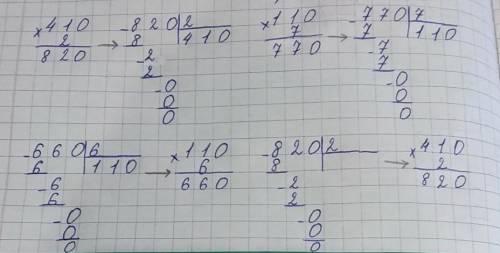 ×410 → -820|2
2 8 410
820 -2
2
-0
0
0
×110 → -770|7
7 7 110
770 -7
7
-0
0
0
-660|6 → ×110
6 110 6
-6 660
6
-0
0
0
-820|2 → ×410
8 2
-2 820
2
-0
0
0